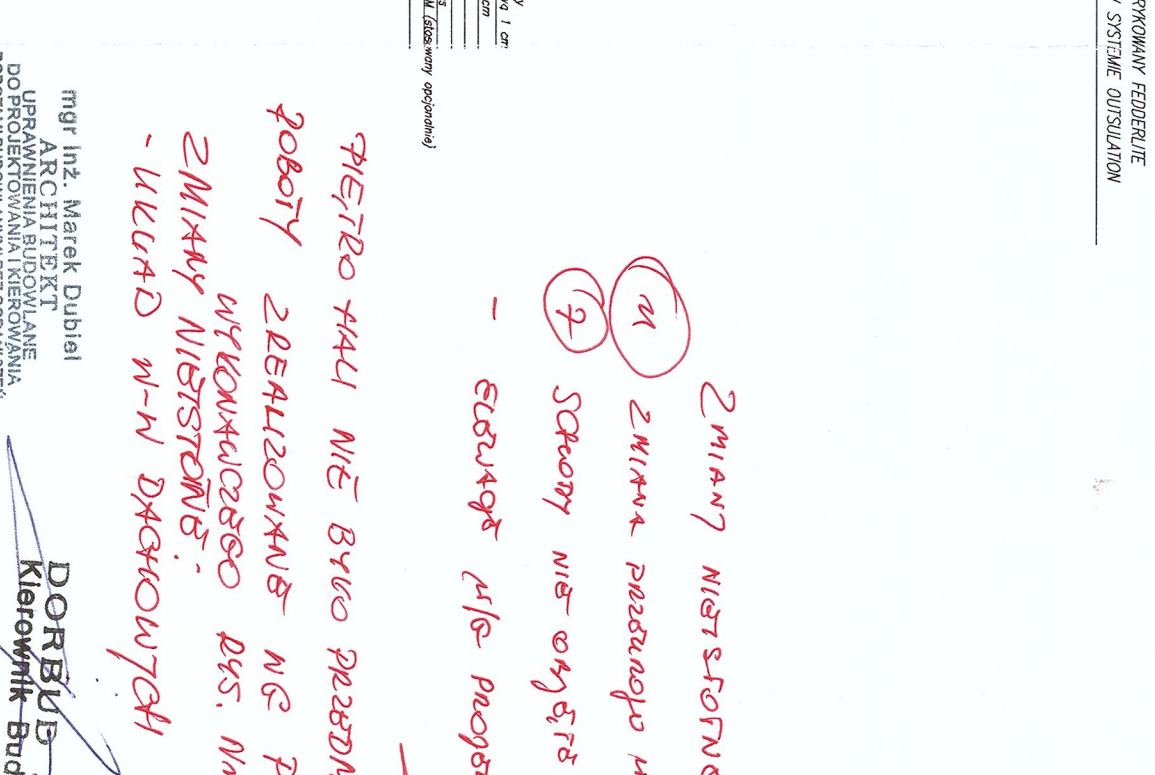 RYKOWANY FEDDERLITE
SYSTEMIE OUTSULATION
1 cm
cm
M (stosowany opcjonalnie)
ZMIANY NIEISTOTNE
11 ZMIANA PRZEKROJU
7 SCHODY NIE OBJĘTE
- ELEWACJE W/G PROJEK
PIĘTRO HALI NIE BYŁO PRZEDM
ROBOTY ZREALIZOWANE WG P
WYKONAWCZEGO RYS. NR
ZMIANY NIEISTOTNE:
- UKŁAD W-W DACHOWYCH
mgr inż. Marek Dubiel
ARCHITEKT
UPRAWNIENIA BUDOWLANE
DO PROJEKTOWANIA I KIEROWANIA
DORBUD
Kierownik Bud